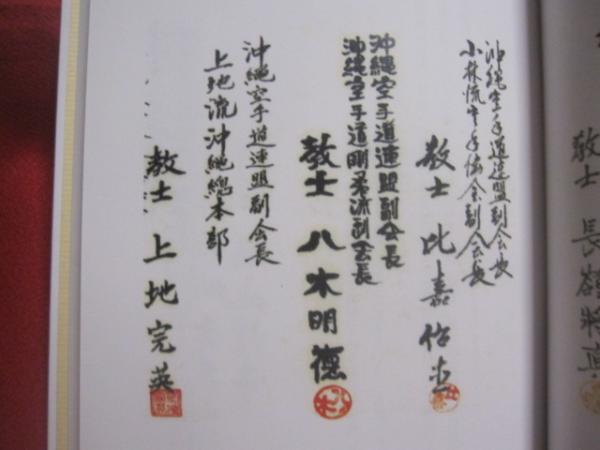 沖縄空手道連盟副会長
小林流空手協会副会長
教士 比嘉佑直
沖縄空手道連盟副会長
沖縄空手道剛柔流副会長
教士 八木明德
沖縄空手道連盟副会長
上地流沖縄総本部
教士 上地完英
教士 長嶺将真